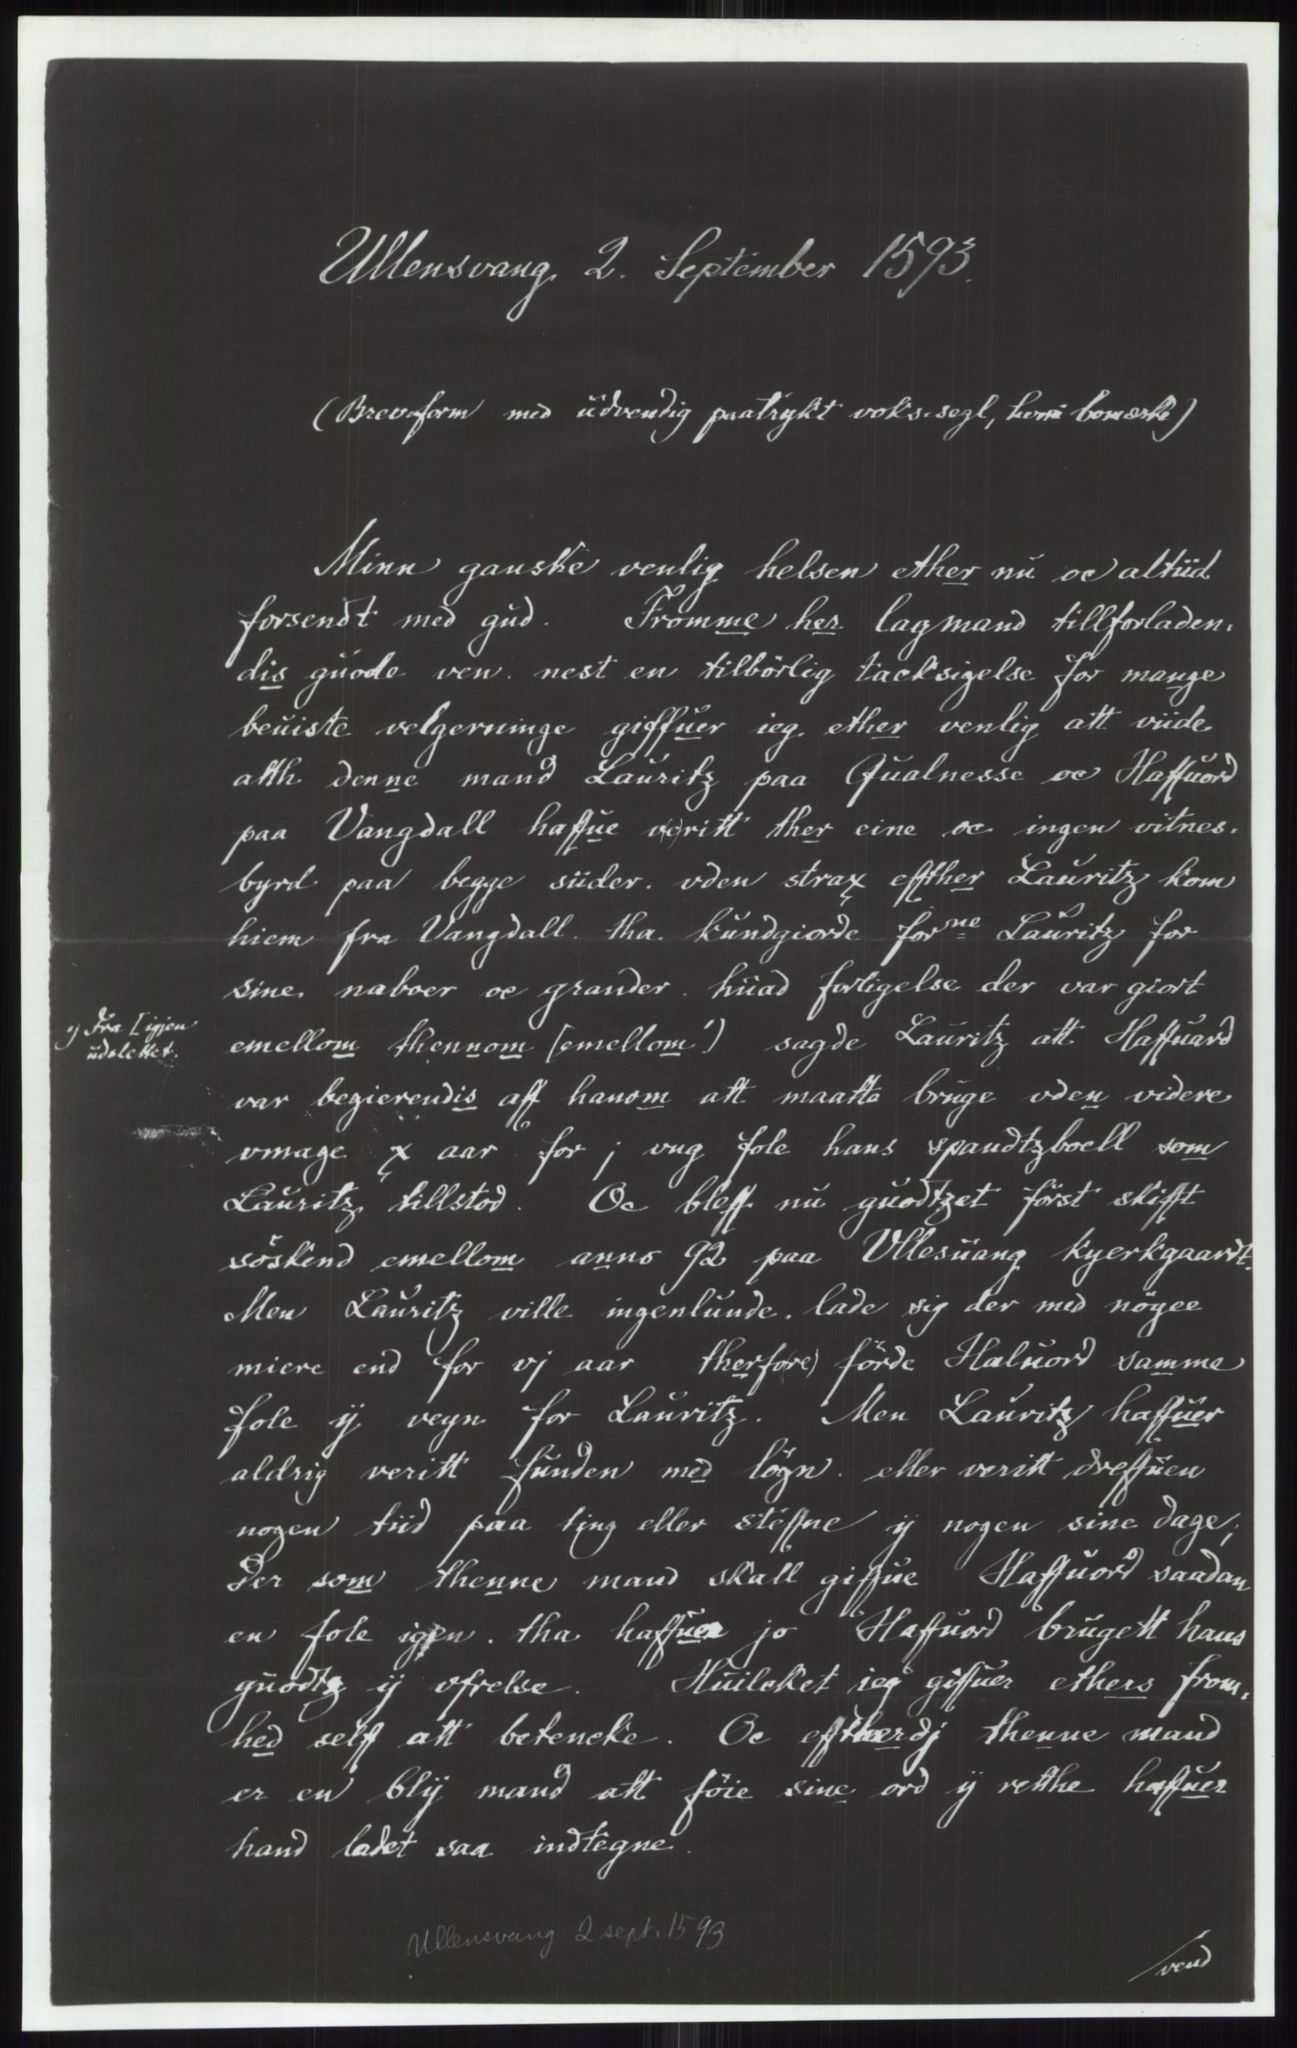 Ullensvang 2. September 1593.
(Brevform med udvendig paatrykt voks-segl, bomærke)
Minn ganske venlig helsen ether nu oc altiid
forsendt med gud. Fromme her lagmand tillforladen-
dis guode ven. nest en tilbörlig tacksigelse for mange
beuiste velgerninge giffuer ieg ether venlig att viide
atth denne mand Lauritz paa Qualnesse oc Haffuord
paa Vangdall haffue veritt ther eine oc ingen vitnes-
byrd paa begge siider. vden strax effther Lauritz kom
hiem fra Vangdall. tha. kundgiorde forne Lauritz for
sine naboer oc grander. huad forligelse der var giort
emellom thennom [emellom¹) sagde Lauritz att Haffuard
¹) Fra [ igjen
udslettet.
var begierendis aff hanom att maatte bruge vden videre
vmage x aar for j vng fole hans spandtzboell som
Lauritz tillstod. Oc bleff nu guodtzet först skifft
söskend emellom anno 92 paa Vllesuang kyerkgaardt.
Men Lauritz ville ingenlunde. lade sig der med nöyee
miere end for vj aar therfore) förde Haluord samme
fole ÿ vegn for Lauritz. Men Lauritz haffuer
aldrig veritt funden med lögn. eller veritt dreffuen
nogen tiid paa ting eller steffne ÿ nogen sine dage;
Der som thenne mand skall giffue Haffuord saadan
en fole igien. tha haffuer jo Haffuord brugett hans
guodtz ÿ ofrelse. Huilcket ieg giffuer ethers from-
hed self att betencke. Oc effтherdj thenne mand
er en blÿ mand att föie sine ord ÿ retthe haffuer
hand ladet saa indtegne.
Ullensvang 2 sept. 1593
vend